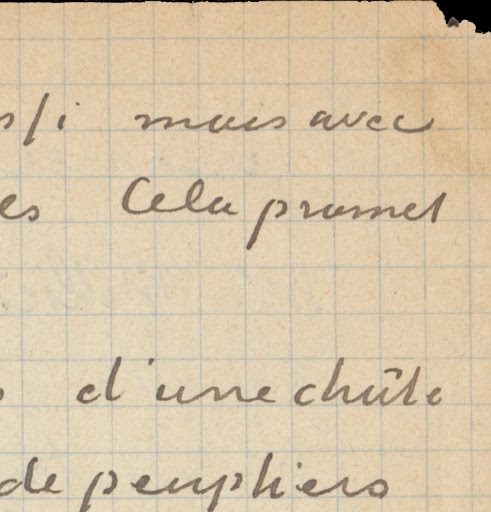 s/i mais avec
es Cela promet
d'une chûte
de peupliers